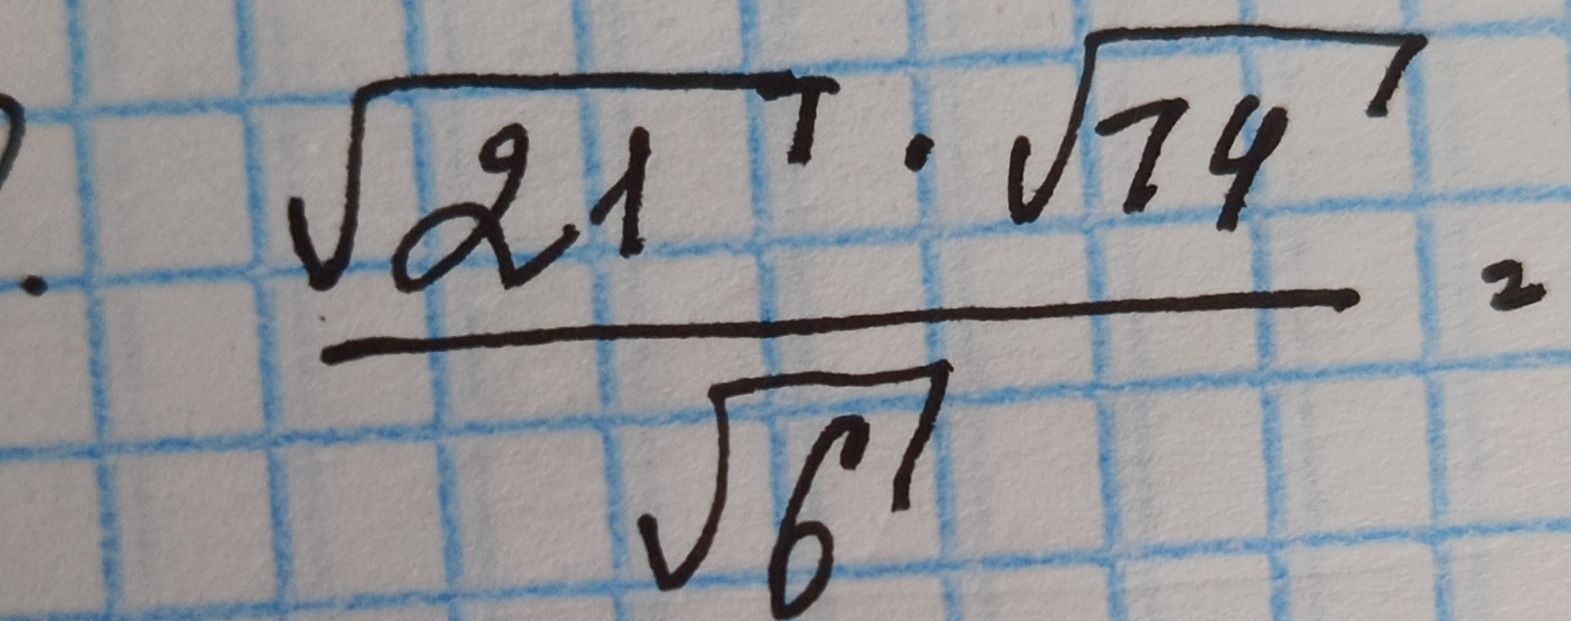 √21 · √14
———— =
√6